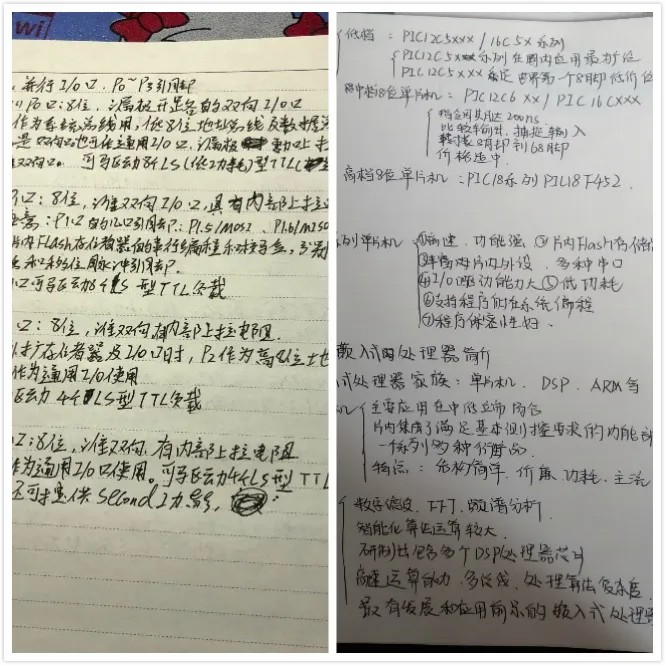 wi
并行I/O口、P0~P3引用却
P0口：8位，漏极开路的双向I/O口
作为系统总线用，低8位地址总线及数据总
双向口也可作通用I/O口，漏极
双向口。 可驱动8个LS(低功耗)型TTL
口：8位，准双向I/O口，具有内部上拉
P1.5/MOSI、P1.6/MISO
片内Flash存储器
口可驱动4个LS型TTL负载
口：8位，准双向，内部上拉电阻
扩存储器及I/O口时，P2作为高8位地
作为通用I/O使用
驱动4个LS型TTL负载
口：8位，准双向，有内部上拉电阻
作为通用I/O口使用。可驱动4个LS型TTL
还可提供second功能，
低档：PIC12C5XXX/16C5X系列
PIC12C5XXX系列在国内应用最广泛
PIC12C5XXX是世界第一个8脚低价位
中档8位单片机：PIC12C6XX/PIC16CXXX
指令周期达200ns
比较输出，捕捉输入
封装8脚到68脚
价格适中
高档8位单片机：PIC18系列 PIC18F452.
系列单片机 ①高速、功能强 ②片内Flash存储
③丰富片内外设，多种串口
④I/O驱动能力大⑤低功耗
⑥支持程序的在系统编程
⑦程序保密性好.
嵌入式处理器简介
式处理器家族：单片机、DSP、ARM等
机 主要应用在中低端场合
片内集成了满足基本测控要求的功能部
一系列多种衍品
特点：结构简单、价廉、功耗、主流
数字滤波、FFT、频谱分析
智能化算法运算较大.
研制出多个DSP处理器芯片
高速运算能力、多总线、处理算法复杂度
最有发展和应用前景的嵌入式处理